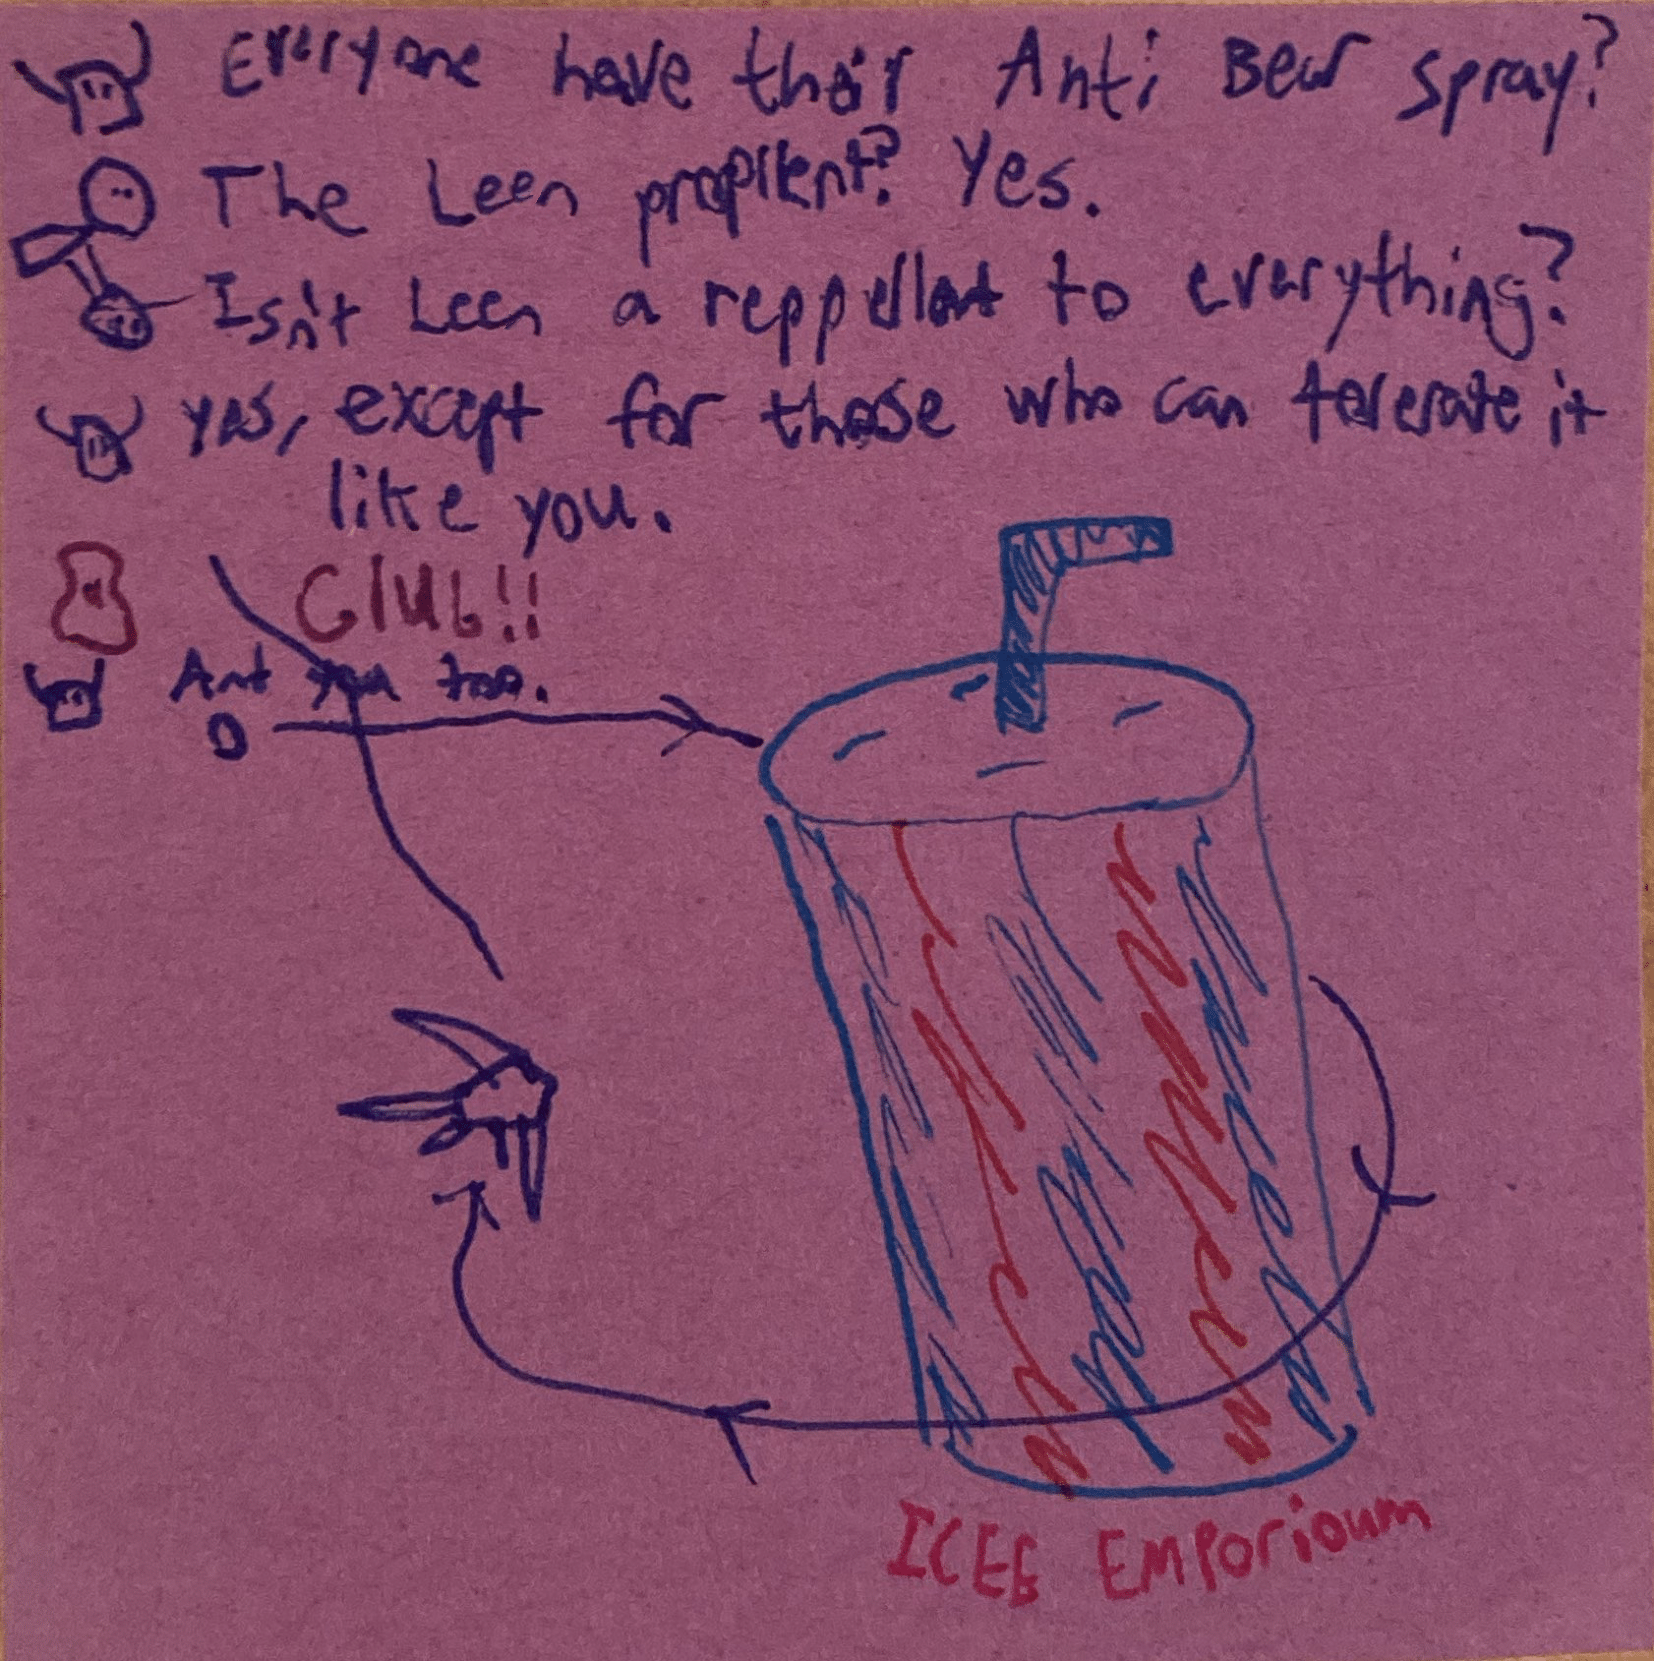 Everyone have their Anti Bear spray?
The Leen propllent? Yes.
Isn't Leen a reppellant to everything?
yes, except for those who can telerate it
like you.
Glub!!
Ant you too.
ICEE Emporioum